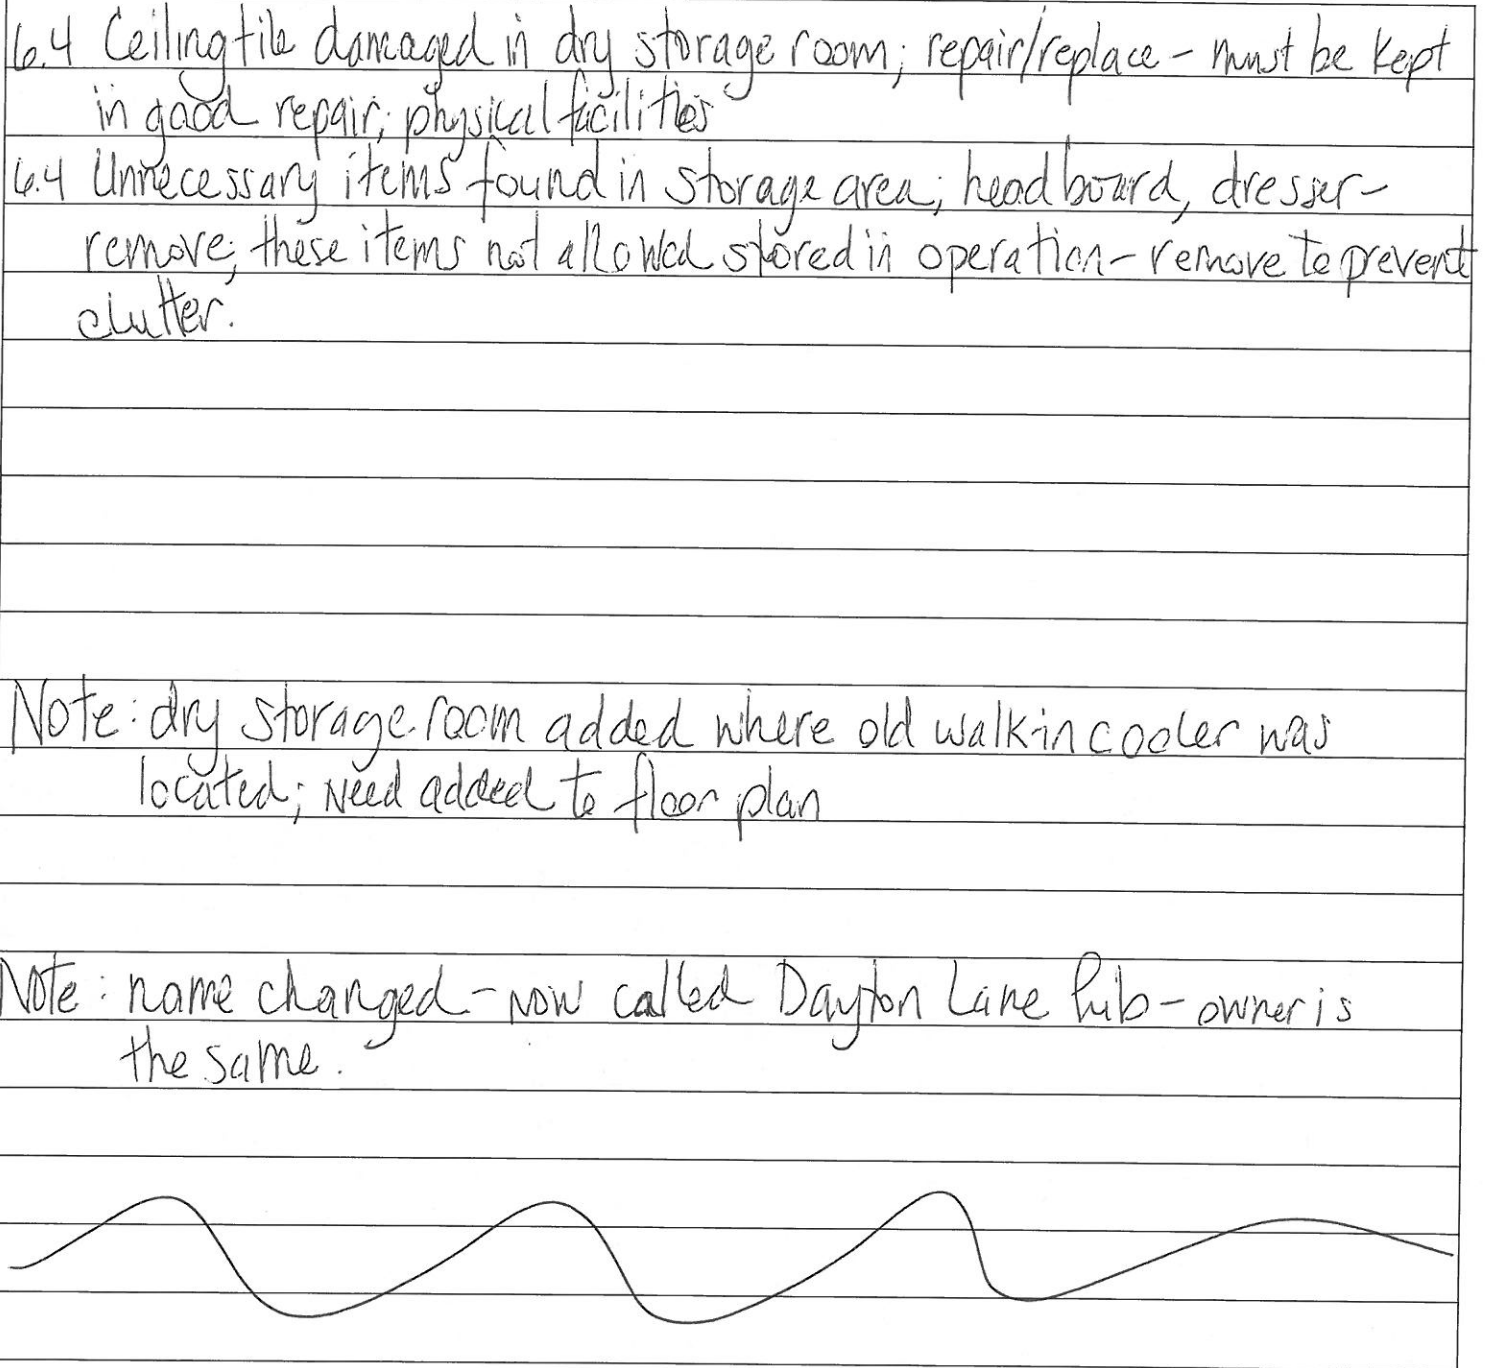 6.4 Ceiling tile damaged in dry storage room; repair/replace - must be kept
in good repair; physical facilities
6.4 Unnecessary items found in storage area; headboard, dresser-
remove; these items not allowed stored in operation - remove to prevent
clutter.
Note: dry storage room added where old walk-in cooler was
located; need added to floor plan
Note: name changed - now called Dayton Lane Pub - owner is
the same.